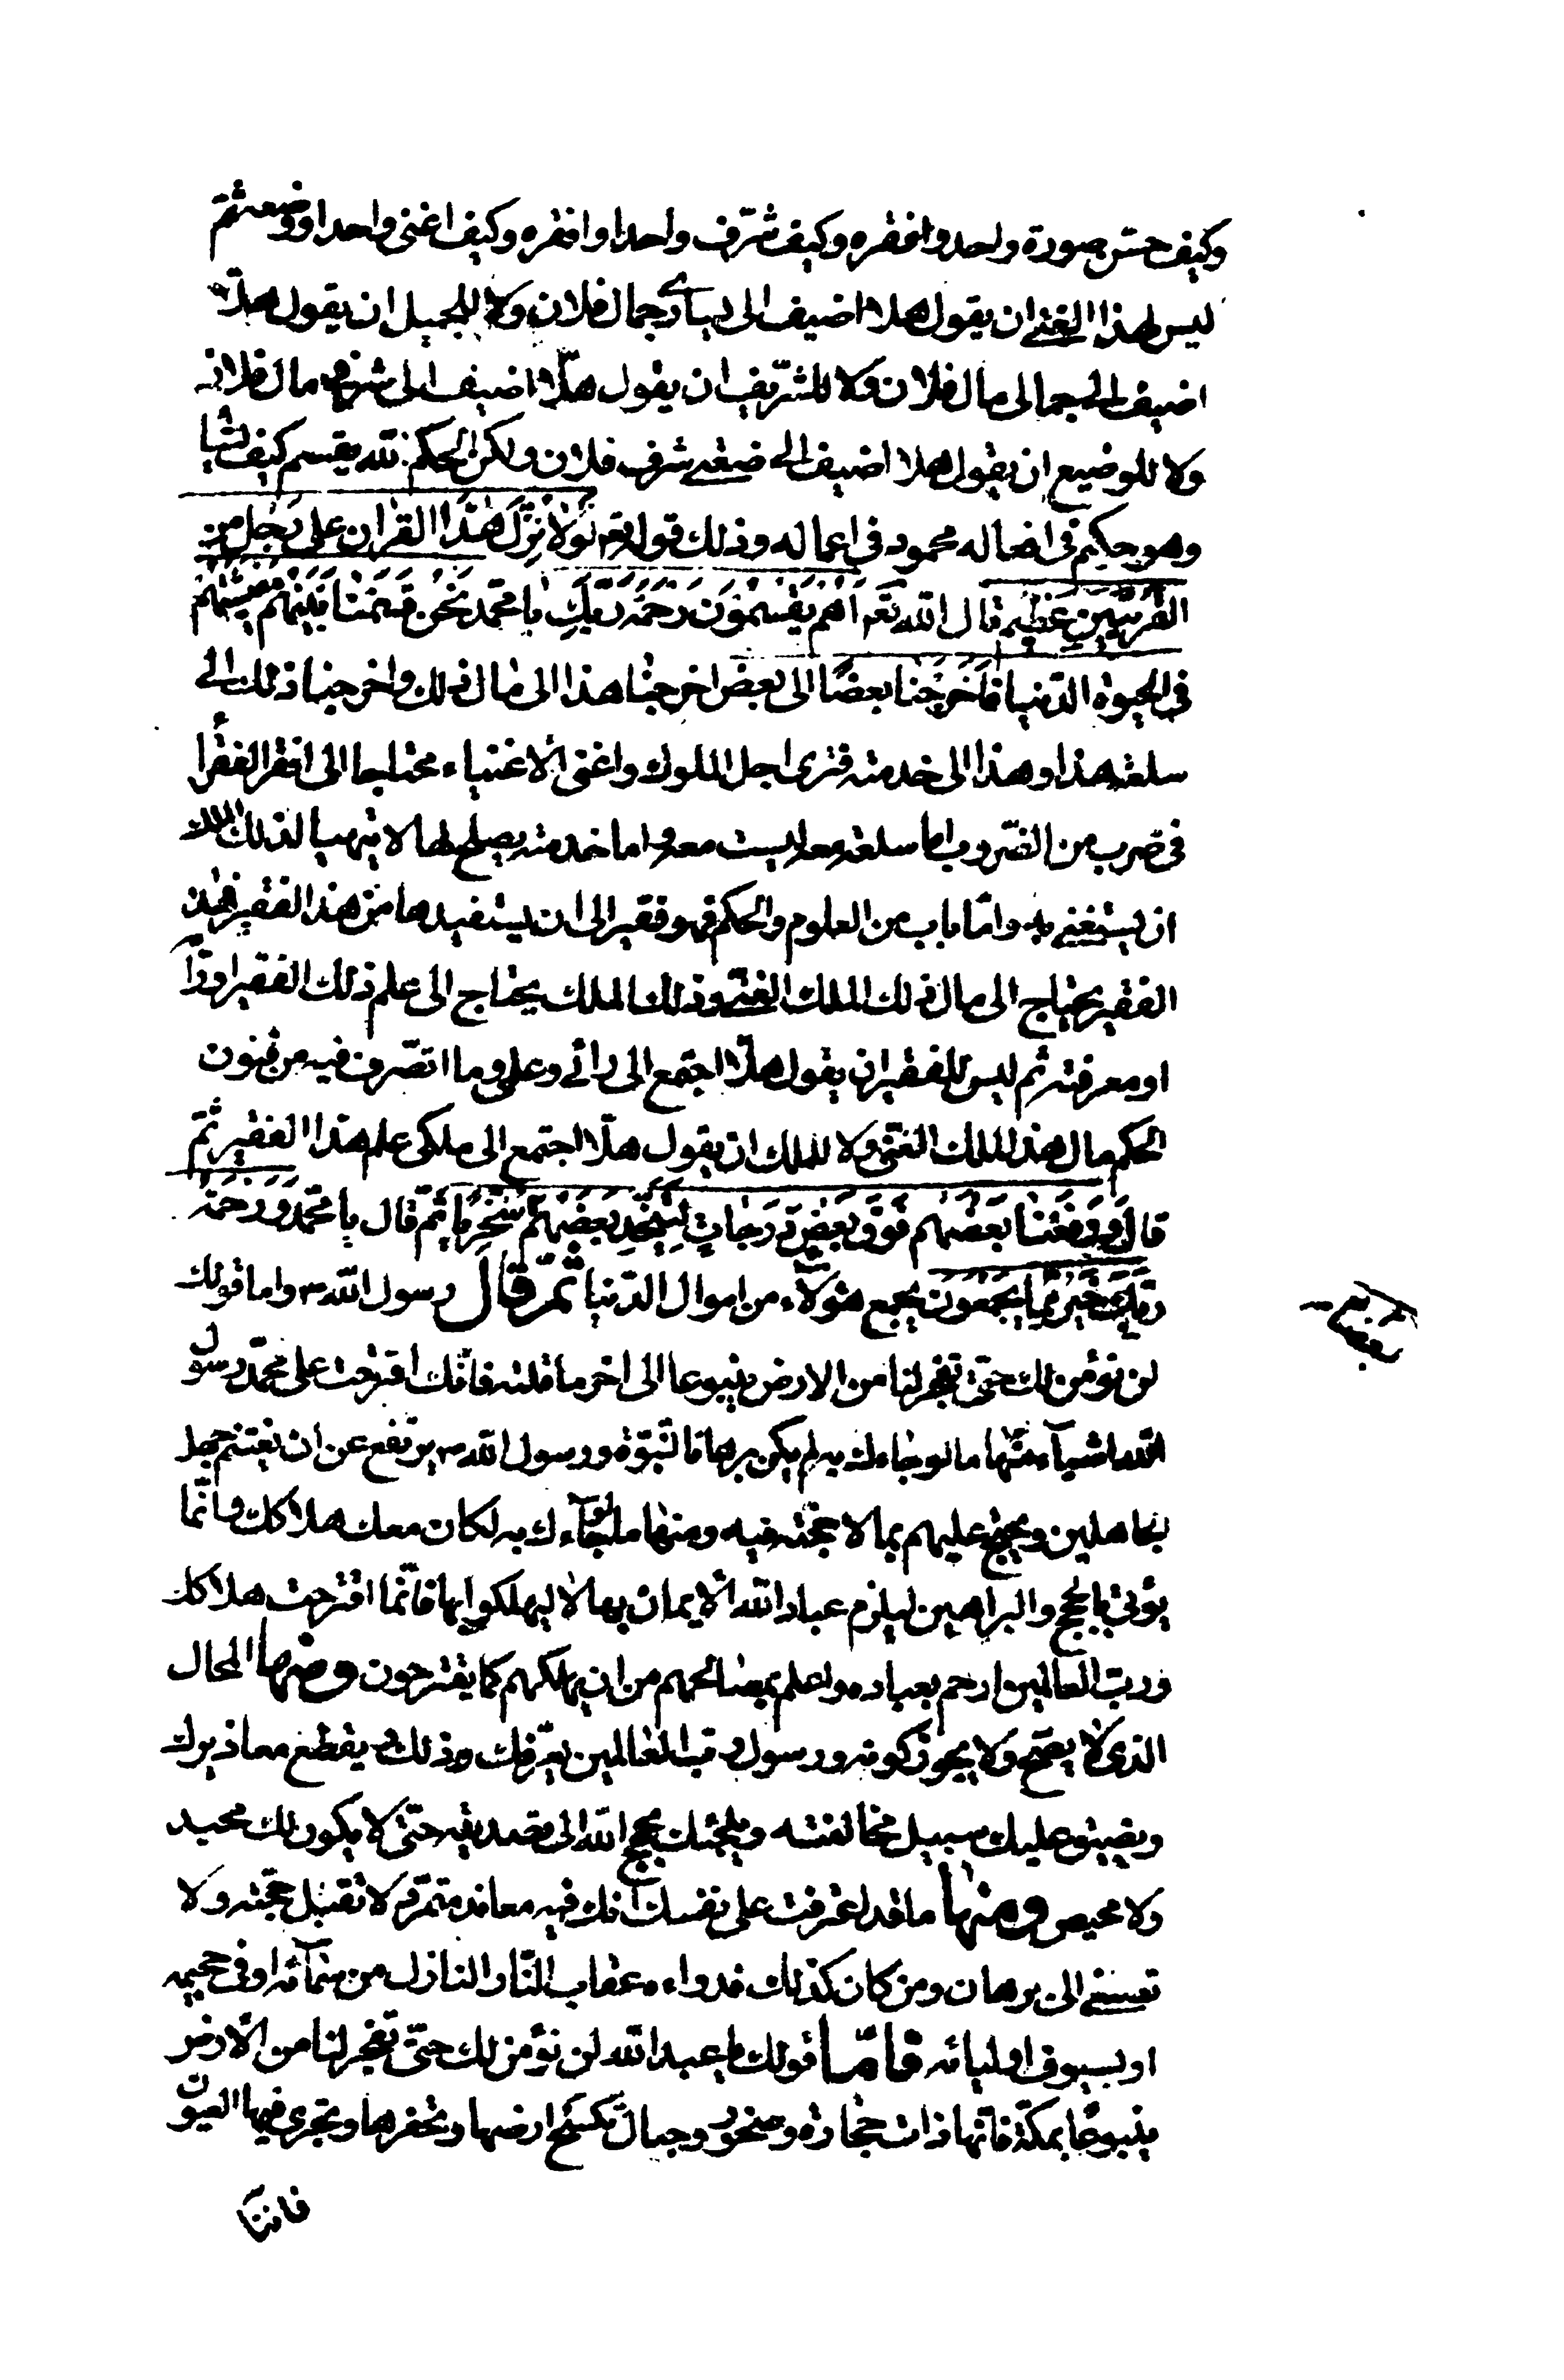 وكيف حسّن صورة واحد وافقره وكيف شرّف واحدا وافقره وكيف اغنى واحدا ووضعه ثمّ
ليس لهذا الغني ان يقول هلا اضيف الى يساري جمال فلان ولا للجميل ان يقول هلا
اضيف الى جمالى مال فلان ولا للشّريف ان يقول هلّا اضيف الى شرفى مال فلان
ولا للوضيع ان يقول هلا اضيف الى ضعتي شرف فلان ولكن الحكم لله يقسم كيف يشا
وهو حكيم فى افعاله محمود فى اعماله وذلك قوله تع لَوْلا نُزِّلَ هٰذَا القرانُ عَلى رَجُلٍ مِنَ
القَرْيَتَيْنِ عَظيم قال الله تعَ اَهُمْ يَقْسِمُونَ رَحْمَةَ رَبِّكَ يا محمّد نَحْنُ قَسَمْنا بَيْنَهُمْ مَعيشَتَهُمْ
فى الحيوة الدّنيا فاخرجنا بعضًا الى بعض اخرجنا هذا الى مال ذلك واخرجنا ذلك الى
سلعة هذا وهذا الى خدمته فترى اجل الملوك واغنى الاغنياء محتاجا الى افقر الفقرا
فى ضرب من الضّروب اما سلعة معه ليست معه واما خدمته يصلح لها لا يتهيا لذلك الملك
ان يستغني به وامّا باب من العلوم والحكم فهو فقير الى ان يستفيدها من هذا الفقير فهذا
الفقير يحتاج الى مال ذلك الملك الغني وذلك الملك يحتاج الى علم ذلك الفقير او رأ
او معرفته ثم ليس للفقير ان يقول هلّا اجتمع الى رائي وعلمي وما اتصّرف فيه من فنون
الحكم مال هذا الملك الغنى ولا للملك ان يقول هلّا اجتمع الى ملكى علم هذا الفقير ثمّ
قال وَرَفَعْنا بَعْضَهُم فَوْقَ بَعْضٍ دَرَجاتٍ لِيَتَّخِذَ بَعْضُهُمْ بَعْضًا سُخْرِيّا ثمّ قال يا محمّد وَرَحْمَةُ
رَبِّكَ خَيْرٌ مِمّا يَجْمَعُونَ يجمع هؤلاء من اموال الدّنيا ثمّ قال رسول الله ص واما قولك
لن نؤمن لك حتّى تفجر لنا من الارض ينبوعا الى اخر ما قلته فانّك اقترحت على محمّد رسول
الله اشياء منها ما لو جاءك به لم يكن برهانا لنبوّة ورسول الله ص يرتفع عن ان يغتنم جهل
الجاهلين ويحتج عليهم بما لا حجّة فيه ومنها ما لو جاءك به لكان معك هلاكك وانّما
يؤتى بالحجج والبراهين ليلزم عباد الله الايمان بها لا ليهلكوا بها فانّما اقترحت هلاكك
وربّ العالمين ارحم بعباده واعلم بمصالحهم من ان يهلكهم كما يقترحون ومنها المحال
الذى لا يصحّ ولا يجوز كونه ورسول ربّ العالمين يعرّفك ذلك ويقطع معاذيرك
ويضيق عليك سبيل مخالفته ويلجئك بحجج الله الى تصديقه حتّى لا يكون لك محيد
ولا محيص ومنها ما قد اعترفت على نفسك انك فيه معاند متمرّد لا تقبل حجّة ولا
تصغي الى برهان ومن كان كذلك فدواءه عقاب النّار النازل من سمائه او فى جحيمه
او بسيوف اوليائه فامّا قولك يا عبد الله لن نؤمن لك حتّى تفجر لنا من الارض
ينبوعًا بمكّة فانّها ذات حجارة وصخور وجبال تكسح ارضها وتحفرها وتجرى فيها العيون
فاننا